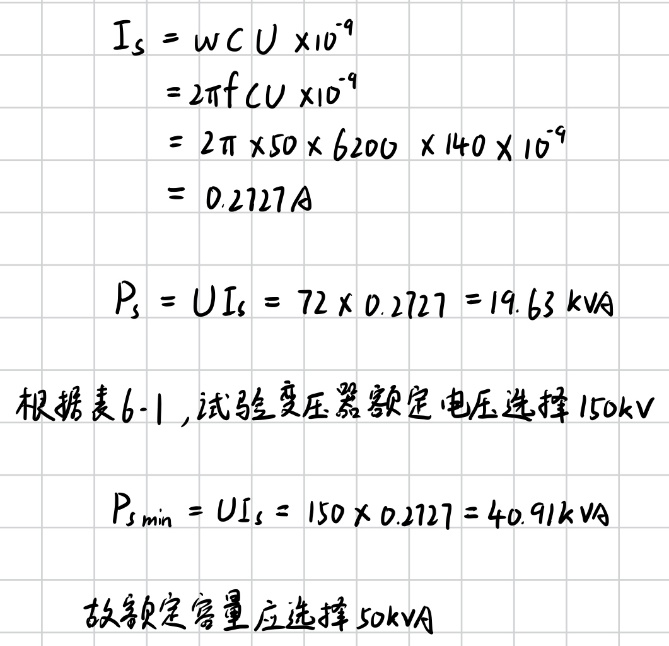 Is = wCU ×10⁻⁹
= 2πfCU ×10⁻⁹
= 2π ×50 × 6200 ×140 × 10⁻⁹
= 0.2727A
Ps = UIs = 72 × 0.2727 = 19.63 kVA
根据表6-1,试验变压器额定电压选择150kV
Ps min = UIs = 150 × 0.2727 = 40.91kVA
故额定容量应选择50kVA